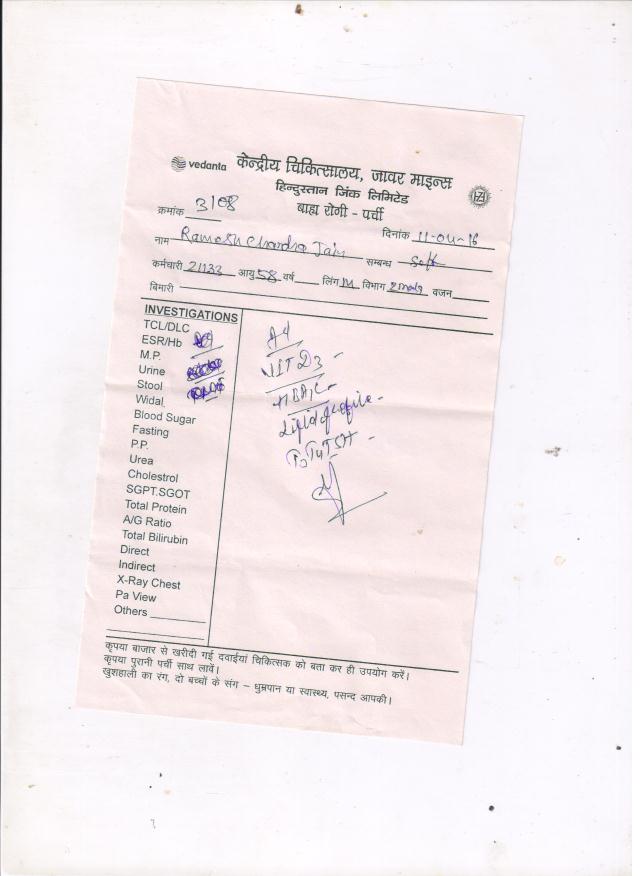 vedanta केन्द्रीय चिकित्सालय, जावर माइन्स
हिन्दुस्तान जिंक लिमिटेड
बाह्य रोगी - पर्ची
क्रमांक 3108
दिनांक 11-04-16
नाम Ramesh Chandra Jain सम्बन्ध Self
कर्मचारी 21133 आयु 58 वर्ष लिंग M विभाग वजन
बिमारी
INVESTIGATIONS
TCL/DLC
ESR/Hb
M.P.
Urine
Stool
Widal
Blood Sugar
Fasting
P.P.
Urea
Cholestrol
SGPT.SGOT
Total Protein
A/G Ratio
Total Bilirubin
Direct
Indirect
X-Ray Chest
Pa View
Others
VIT D3
HBA1C
Lipid profile
T3 T4 TSH
कृपया बाजार से खरीदी गई दवाईयां चिकित्सक को बता कर ही उपयोग करें।
कृपया पुरानी पर्ची साथ लावें।
खुशहाली का रंग, दो बच्चों के संग – धुम्रपान या स्वास्थ्य, पसन्द आपकी।